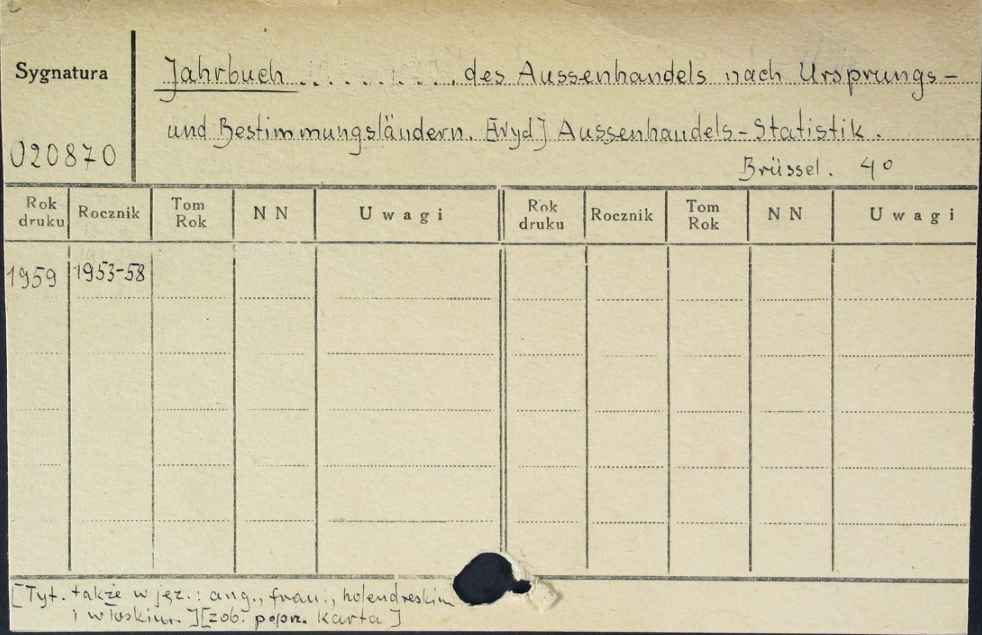 Sygnatura
Jahrbuch . . . . . . . . . des Aussenhandels nach Ursprungs-
und Bestimmungsländern. [Wyd] Aussenhandels-Statistik.
020870
Brüssel. 4°
Rok druku Rocznik Tom Rok N N Uwagi Rok druku Rocznik Tom Rok N N Uwagi
1959 1953-58
[Tyt. także w jęz.: ang., fran., holendreskim
i włoskim.][zob. poprz. karta]